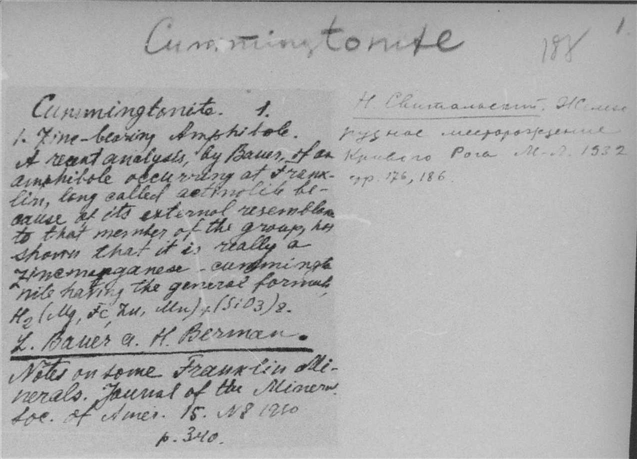 Cummingtonite
188
1.
Cummingtonite. 1.
1. Zinc-bearing Amphibole.
A recent analysis, by Bauer, of an
amphibole occurring at Frank-
lin, long called actinolite be-
cause of its external resemblen
to that member of the group, has
shown that it is really a
zincmanganese-cummingto
nite having the general formula
H2(Mg, Fe, Zn, Mn)7(SiO3)8.
L. Bauer a. H. Berman.
Notes on some Franklin Mi-
nerals. Journal of the Miner.
Soc. of Amer. 15. N8 1930
p. 340.
Н. Свитальский. Железо
рудное месторождение
Кривого Рога М-Л. 1932
стр. 176, 186.